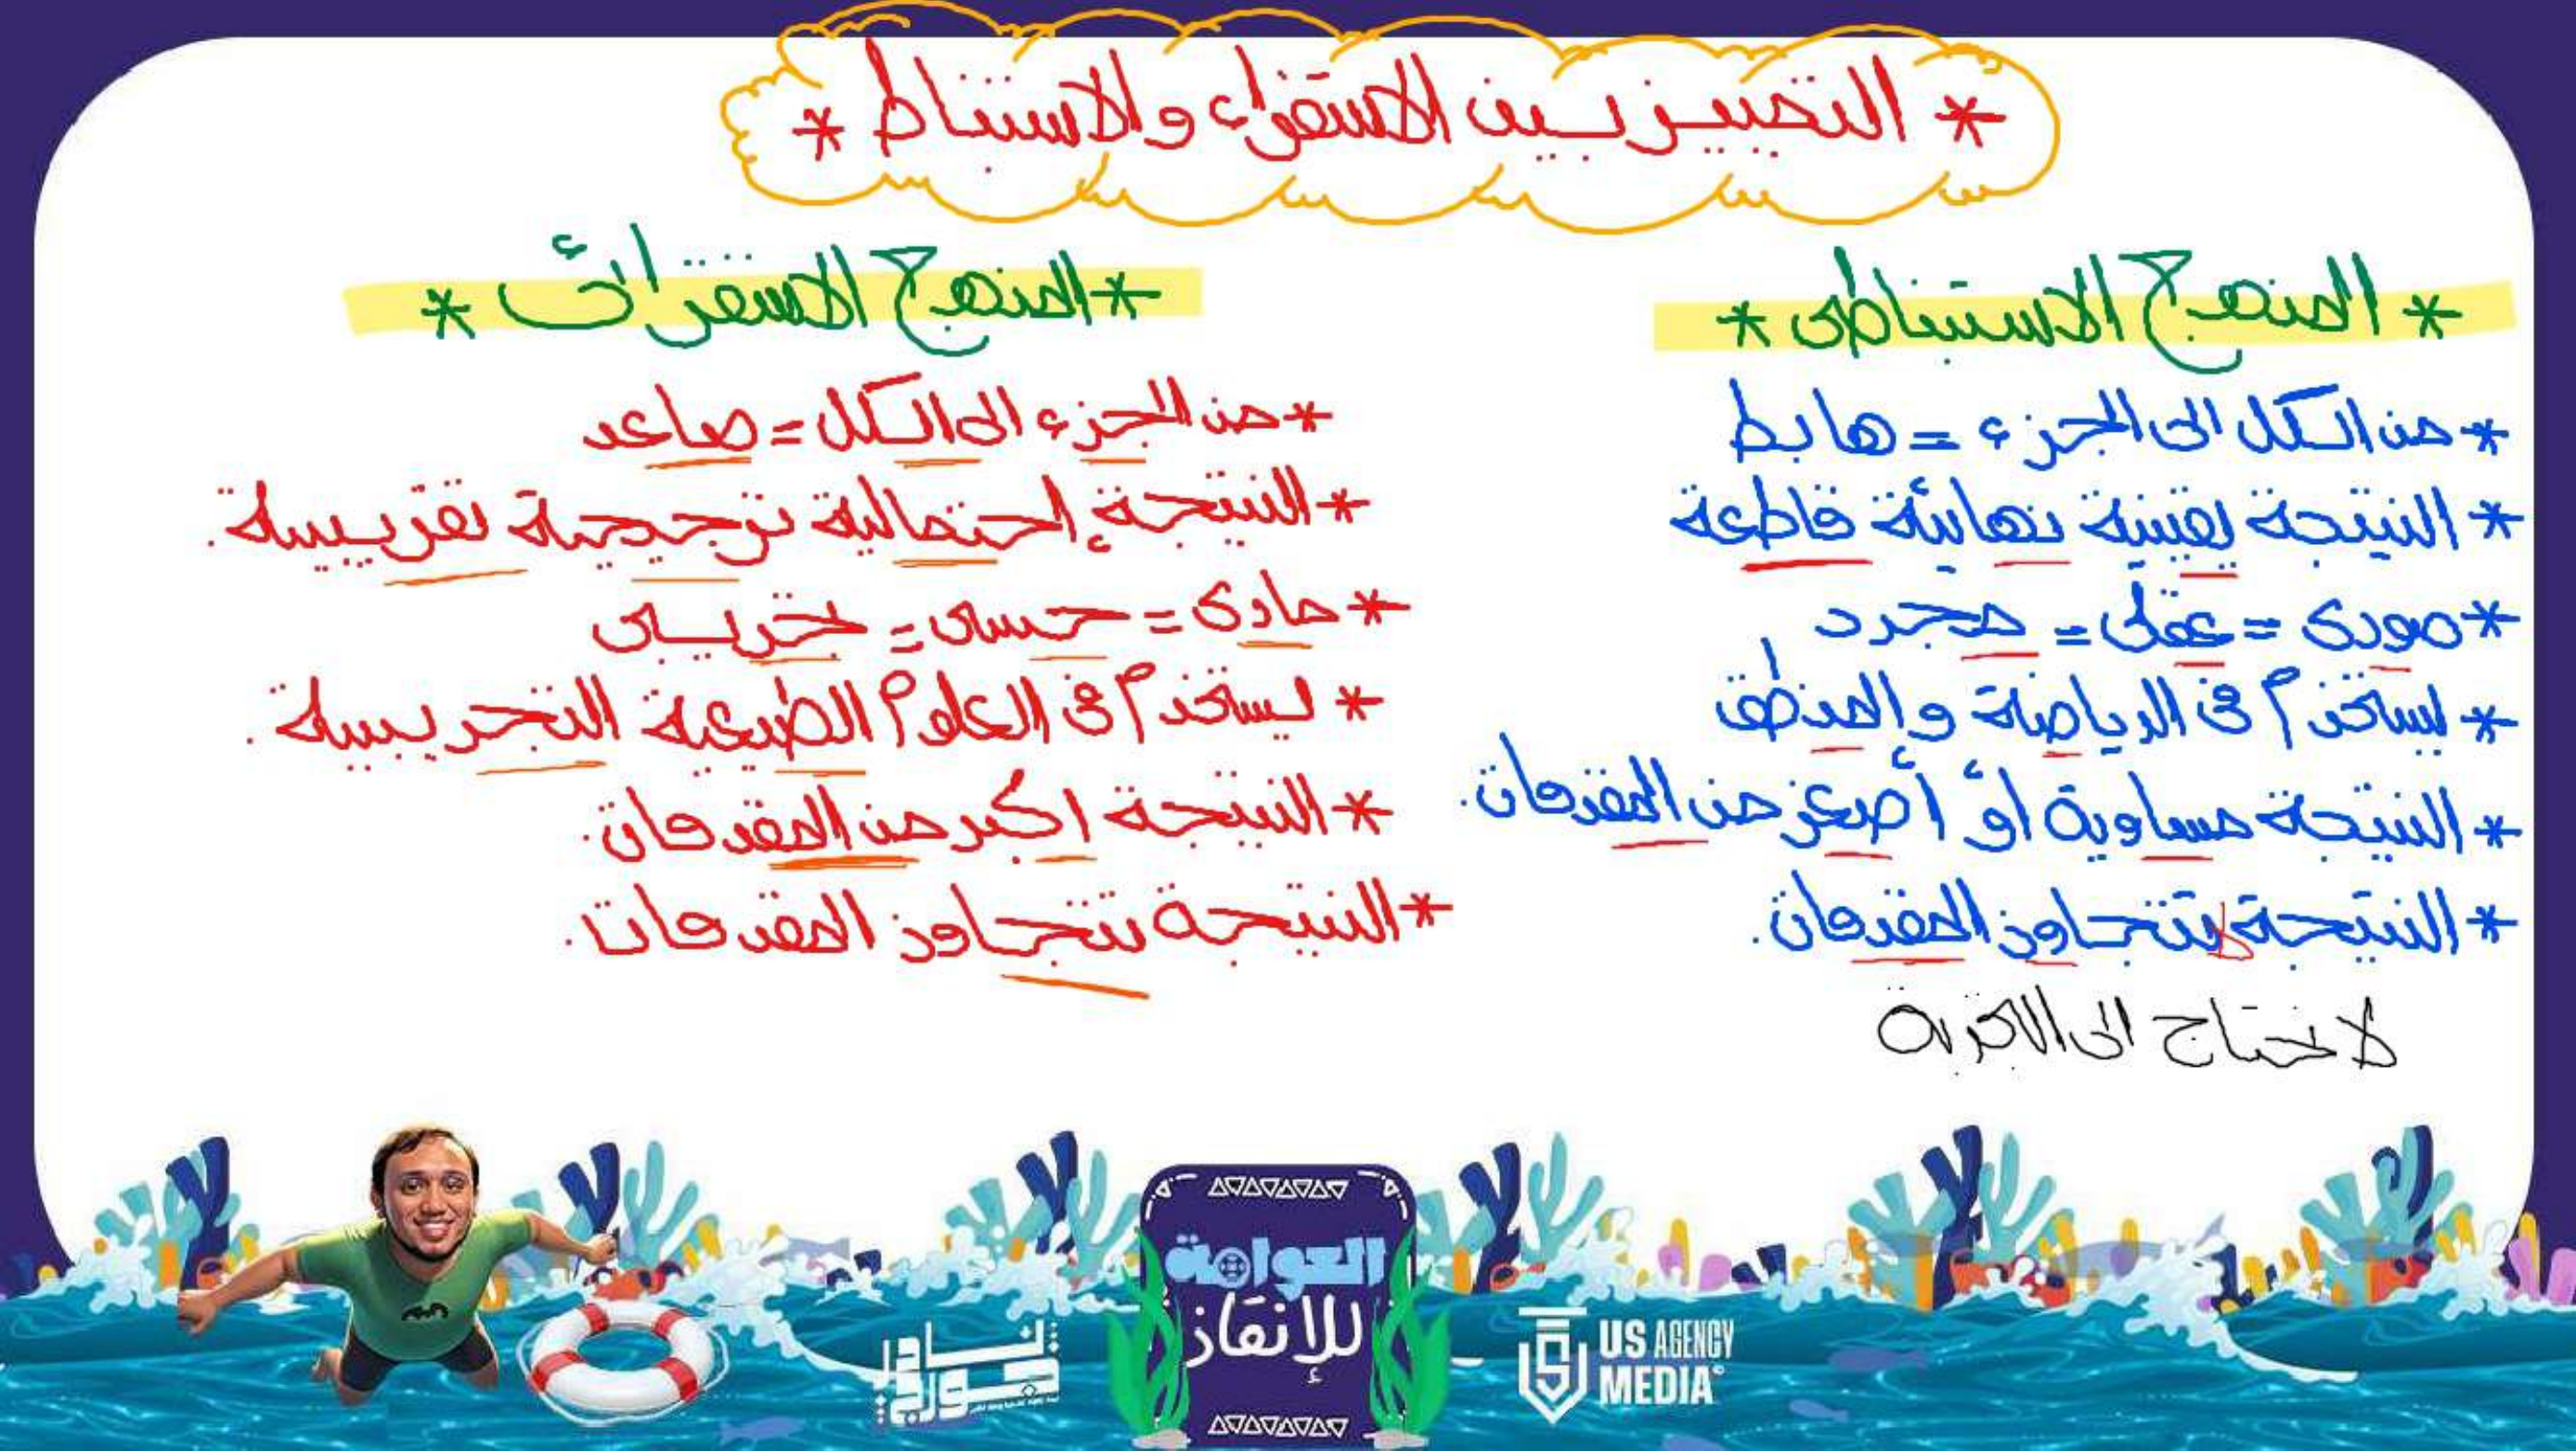 * التمييز بين الاستقراء والاستنباط *
* المنهج الاستنباطى *
* من الكل الى الجزء = هابط
* النتيجة يقينية نهائية قاطعة
* صورى = عقلى = مجرد
* يستخدم فى الرياضة والمنطق
* النتيجة مساوية أو أصغر من المقدمات.
* النتيجة لا تتجاوز المقدمات.
لا تحتاج الى التجربة
* المنهج الاستقرائى *
* من الجزء الى الكل = صاعد
* النتيجة إحتمالية ترجيحية تقريبية.
* مادى = حسى = تجريبى
* يستخدم فى العلوم الطبيعية التجريبية.
* النتيجة اكبر من المقدمات.
* النتيجة تتجاوز المقدمات.
العوامة
للإنقاذ
US AGENCY
MEDIA